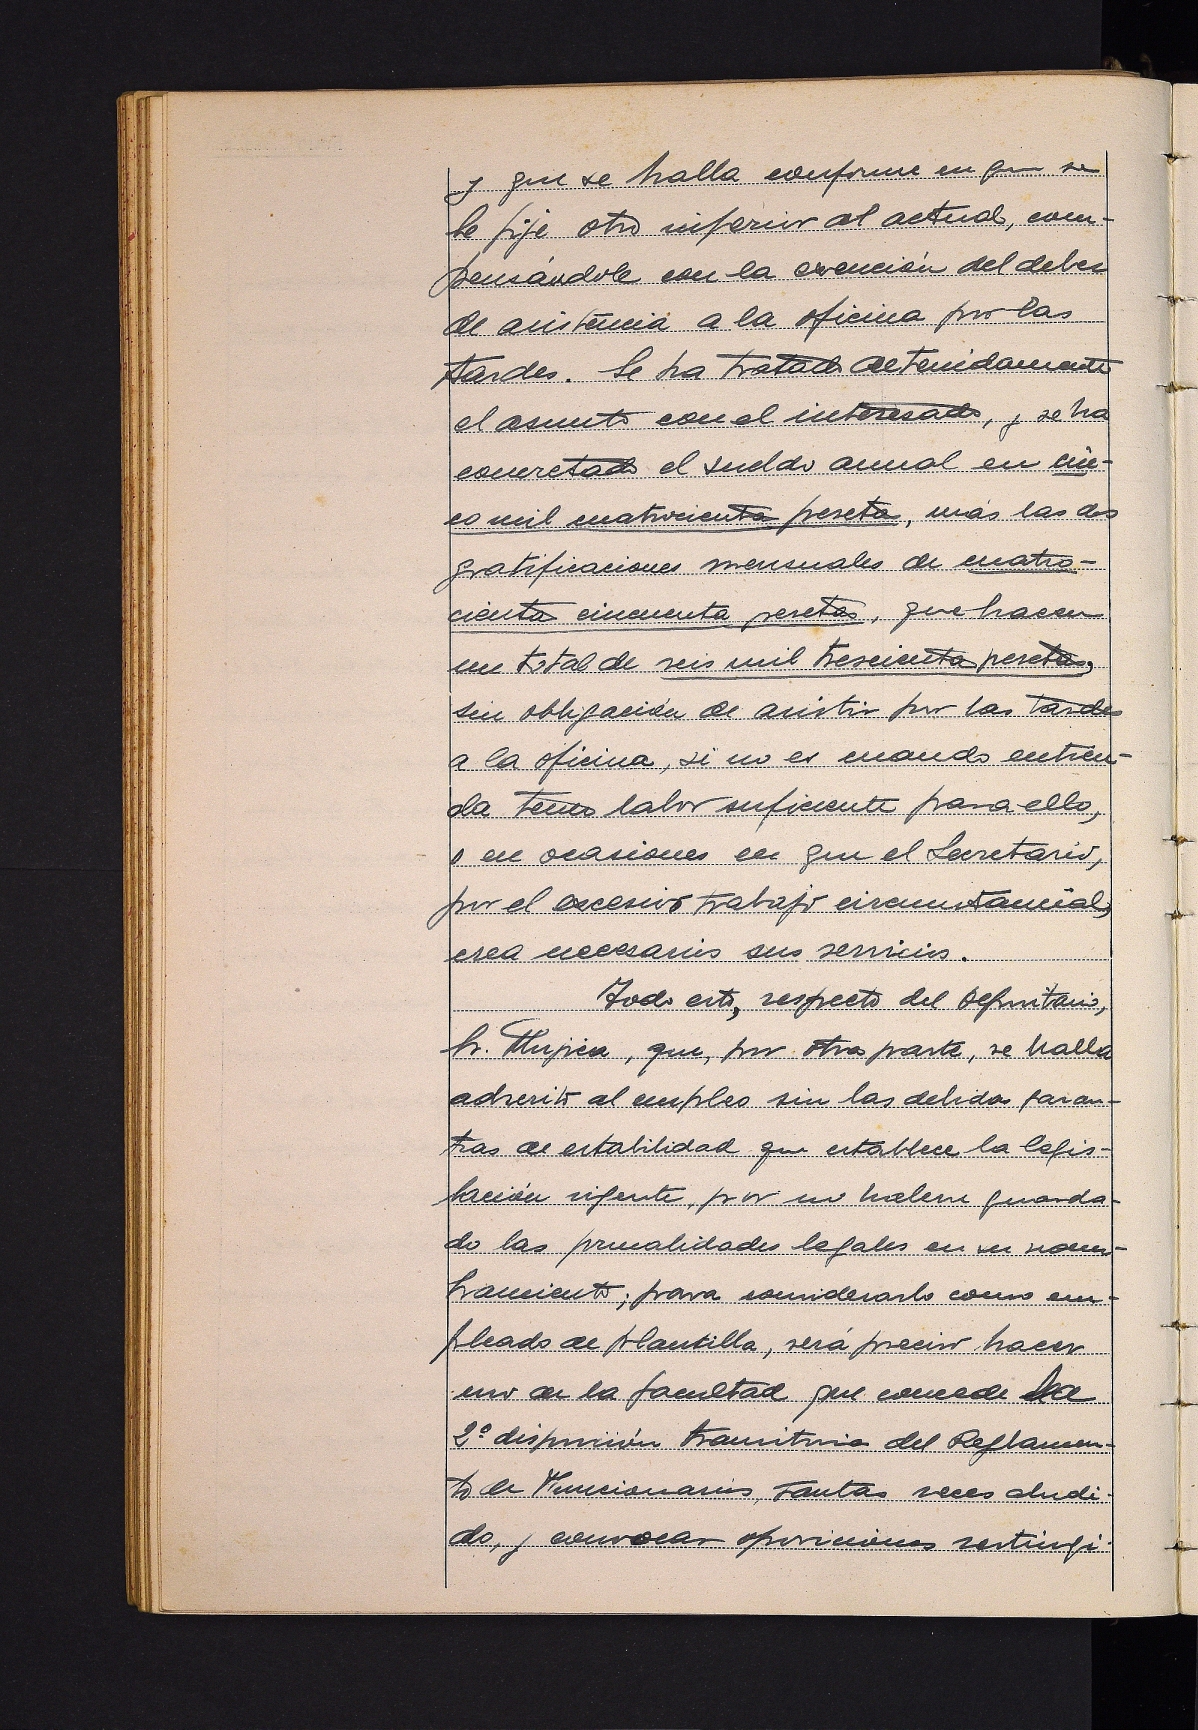 y que se halla conforme en que se
le fije otro inferior al actual, com-
pensándole con la exención del deber
de asistencia a la oficina por las
tardes. Se ha tratado detenidamente
el asunto con el interesado, y se ha
concretado el sueldo anual en cin-
co mil cuatrocientas pesetas, más las dos
gratificaciones mensuales de cuatro-
cientas cincuenta pesetas, que hacen
un total de seis mil trescientas pesetas,
sin obligación de asistir por las tardes
a la oficina, si no es cuando entien-
da tener labor suficiente para ello,
o en ocasiones en que el Secretario,
por el excesivo trabajo circunstancial,
crea necesarios sus servicios.
Todo esto, respecto del Depositario,
Sr. Mujica, que, por otra parte, se halla
adscrito al empleo sin las debidas garan-
tías de estabilidad que establece la legis-
lación vigente, por no haberse guarda-
do las formalidades legales en su nom-
bramiento; para considerarlo como em-
pleado de plantilla, será preciso hacer
uso de la facultad que concede la
2ª disposición transitoria del Reglamen-
to de Funcionarios, tantas veces aludi-
do, y convocar oposiciones restringi-